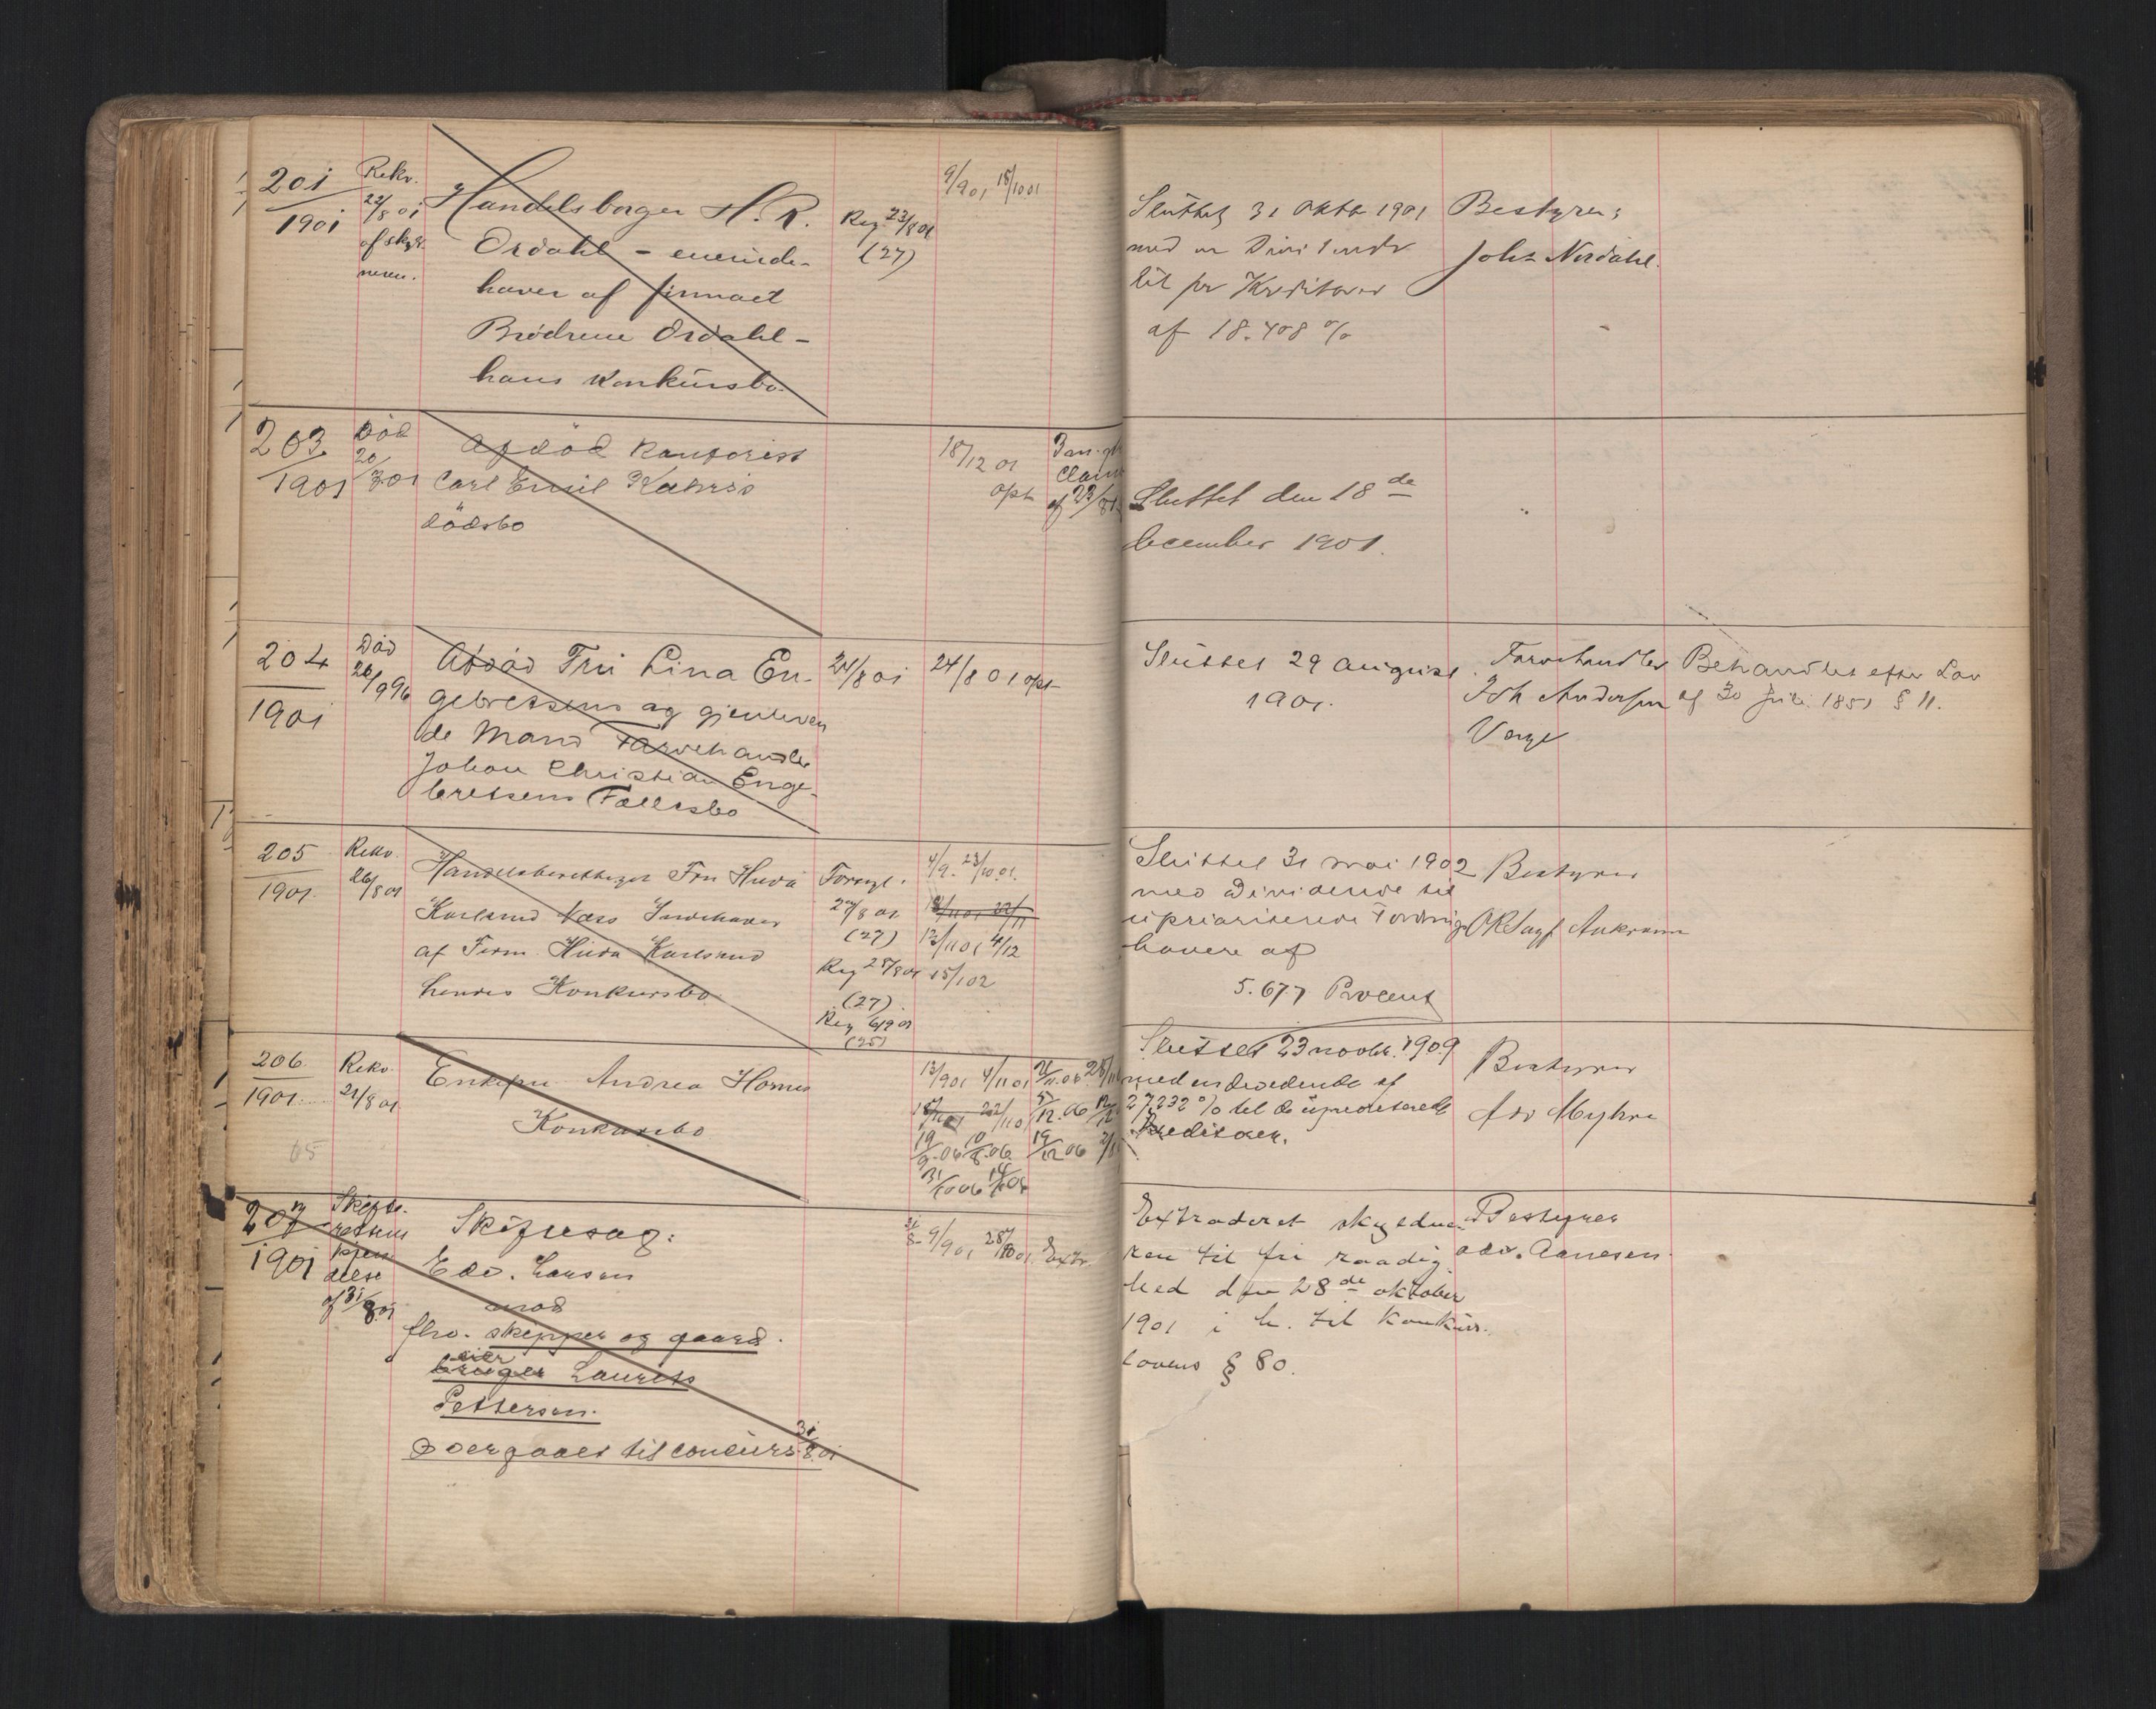 201
1901
Rekv.
22/8 01
af skyld
neren.
Handelsborger H. R.
Ordahl – eneinde-
haver af firmaet
Brödrene Ordahl –
hans Konkursbo.
Reg. 23/8 01
(27)
9/9 01 18/10 01
Sluttet 31 Oktbr 1901
med en Dividende
til pr Kreditorer
af 18.408 %
Bestyrer:
Johs Nordahl.
203
1901
Död
20/3 01
Afdöd Kontorist
Carl Emil
dödsbo
18/12 01
opt
af 23/8 01
Sluttet den 18de
December 1901.
204
1901
Död
26/9 96
Afdöd Fru Lina En-
gebretsens og gjenleven
de Mand Farvehandler
Johan Christian Enge-
bretsens Fællesbo
24/8 01
24/8 01 opt
Sluttet 29 August
1901.
Farvehandler
Joh Andersen
Verge
Behandlet efter Lov
af 30 Juli 1851 § 11.
205
1901.
Rekv.
26/8 01
Handelsberettiget Fru Hulda
Karlsrud Næss Indehaver
af Firm. Hulda Karlsrud
hendes Konkursbo
Forsegl.
27/8 01
(27)
Reg 28/8 01
(27)
Reg 6/9 01
(25)
4/9. 23/10 01.
13/11 01 4/12
15/1 02
Sluttet 31 mai 1902
med Dividende til
uprioriterede Fordrings
havere af
5.677 Procent
Bestyrer
ORSagf Ankerson
206
1901.
Rekv.
21/8 01
65
Enkefru Andrea Hornes
Konkursbo
13/9 01 4/11 01
19/9 06 10/8 06 19/12 06
31/10 06
Sluttet 23 novbr. 1909
med en dividende af
27,232 % til de uprioriterede
Kreditorer.
Bestyrer
Adv Myhre
207
1901
Skifte-
rettens
kjen
delse
af 31/8 01
Skiftesag:
Edv. Larsen
mod
fhv. skipper og gaard-
eier
bruger Laurits
Pettersen.
Overgaaet til concurs 31/8 01
31/8 9/9 01 28/10 01 Extr.
Extraderet skyldne
ren til fri raadig
hed den 28de oktober
1901 i h. til Konkurs-
lovens § 80.
Bestyrer
adv. Aanesen.